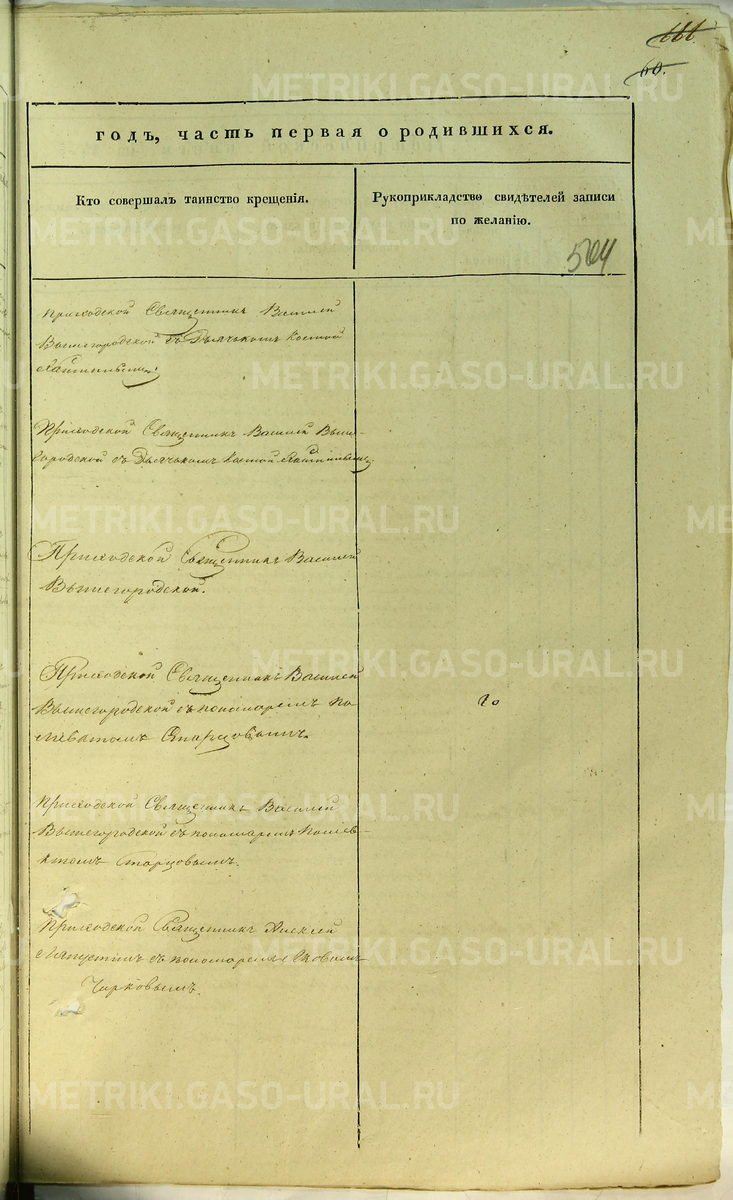 666.
60.
годъ, часть первая о родившихся.
Кто совершалъ таинство крещенія.
Рукоприкладство свидѣтелей записи
по желанію.
504
Приходской Священникъ Василей
Вышегородской съ Дьячькомъ Костой
Приходской Священникъ Василей Выше-
городской съ Дьячькомъ Костой
Приходской Священникъ Василей
Вышегородской.
Приходской Священникъ Василей
Вышегородской съ пономаремъ По
Старцовымъ.
Приходской Священникъ Василей
Вышегородской съ пономаремъ
Старцовымъ.
Приходской Священникъ Алексей
Лапустинъ съ пономаремъ
Чирковымъ.
METRIKI.GASO-URAL.RU